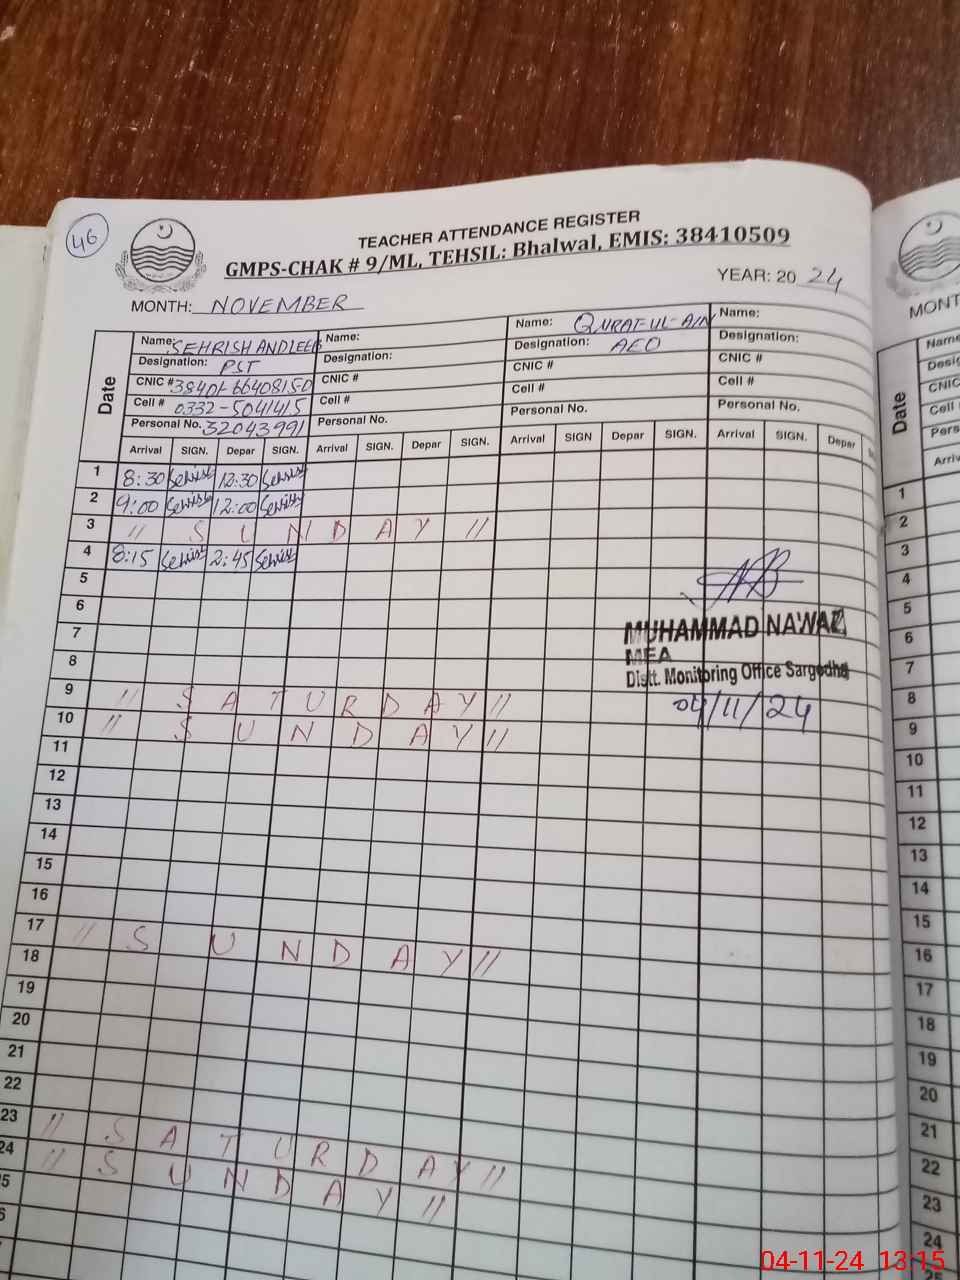 46
TEACHER ATTENDANCE REGISTER
GMPS-CHAK # 9/ML, TEHSIL: Bhalwal, EMIS: 38410509
MONTH: NOVEMBER YEAR: 20 24
Date
Name: SEHRISH ANDLEEB Name: Name: QURAT-UL-AIN Name:
Designation: PST Designation: Designation: AEO Designation:
CNIC # 38401-6640815-0 CNIC # CNIC # CNIC #
Cell # 0332-5041415 Cell # Cell # Cell #
Personal No. 32043991 Personal No. Personal No. Personal No.
Arrival SIGN. Depar SIGN. Arrival SIGN. Depar SIGN. Arrival SIGN Depar SIGN. Arrival SIGN. Depar
1 8:30 Sehrish 12:30 Sehrish
2 9:00 Sehrish 12:00 Sehrish
3 // SUNDAY //
4 8:15 Sehrish 2:45 Sehrish
5
6
7
8
9 // SATURDAY //
10 // SUNDAY //
11
12
13
14
15
16
17 // SUNDAY //
18
19
20
21
22
23 // SATURDAY //
24 // SUNDAY //
5
6
MUHAMMAD NAWAZ
MEA
Distt. Monitoring Office Sargodha
04/11/24
MONT
Date
Name
Desig
CNIC
Cell
Pers
Arriv
1
2
3
4
5
6
7
8
9
10
11
12
13
14
15
16
17
18
19
20
21
22
23
24
25
04-11-24 13:15